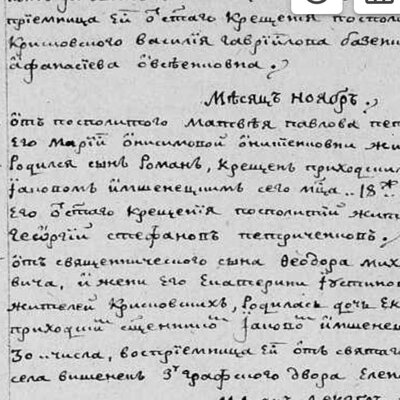 пріемница ей ѿ с҃таго крещенія поспол
Крисовского василія гавріилова базени
аѳанасіева ѡвсѣенковна.
Мѣсяцъ ноябрь.
ѿтъ посполитого матвѣя павлова пет
Его маріи ѡнисимовой жи
родился сынъ романъ, крещенъ приходским
Іаковомъ имшенецкимъ сего мц҃а .. 18го
Его ѿ с҃таго крещенія посполитій жит
геѡргій стефановъ петриченковъ.
ѿтъ священнического сына ѳеодора мих
вича, и жени Его Екатерини Іустинов
жителей Крисовскихъ, родилась дочь Ек
приходскій сщенникъ Іаковъ имшенец
30 .. числа, воспріемница Ей ѿтъ святаго
села вишенекъ графского двора Елен